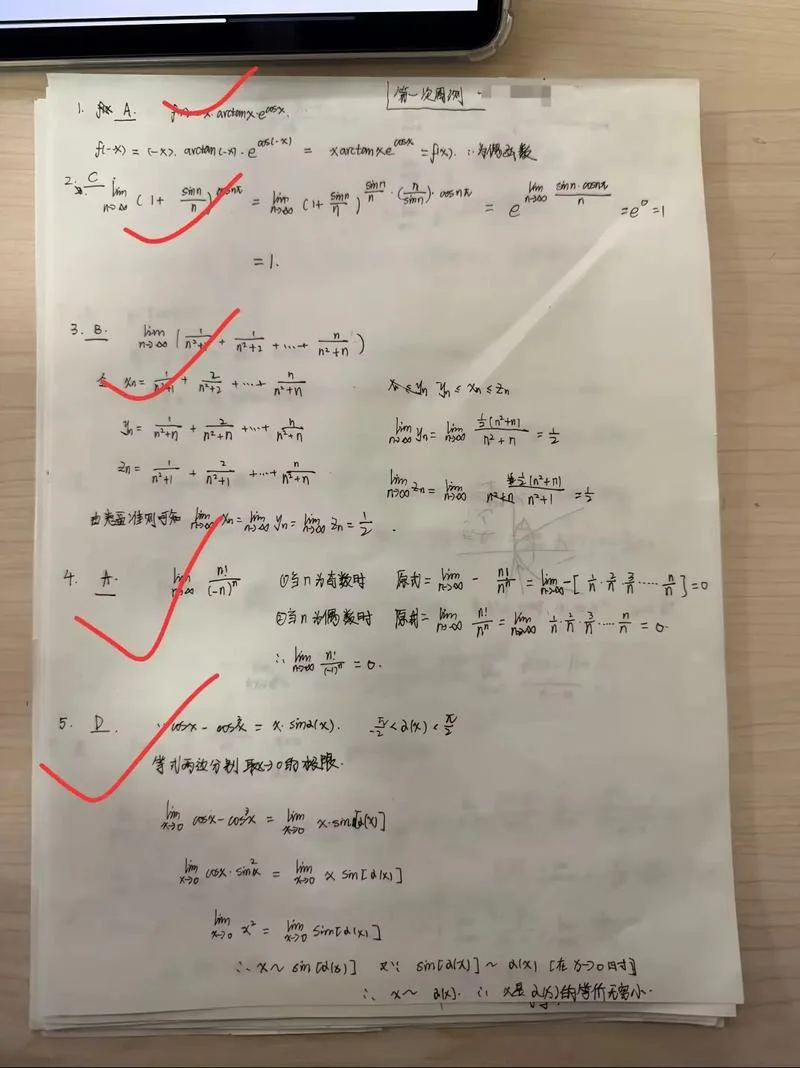 第一次周测
1. A. f(x)=x·arctanx·e^{cosx}.
f(-x) = (-x)·arctan(-x)·e^{cos(-x)} = xarctanxe^{cosx} = f(x). ∴为偶函数
2. C lim_{n→∞} (1+ sinn/n)^{cosnπ} = lim_{n→∞} (1+ sinn/n)^{sinn/n·(n/sinn)·cosnπ} = e^{lim_{n→∞} sinn·cosnπ/n} = e^0 = 1
= 1.
3. B. lim_{n→∞} (1/n²+1 + 1/n²+2 + ... + n/n²+n)
令 xn = 1/n²+1 + 2/n²+2 + ... + n/n²+n
yn ≤ xn ≤ zn
yn = 1/n²+n + 2/n²+n + ... + n/n²+n
lim_{n→∞} yn = lim_{n→∞} ½(n²+n)/n²+n = ½
zn = 1/n²+1 + 2/n²+1 + ... + n/n²+n
lim_{n→∞} zn = lim_{n→∞} ½(n²+n)/n²+1 = ½
由夹逼准则可知 lim_{n→∞} xn = lim_{n→∞} yn = lim_{n→∞} zn = ½.
4. A. lim_{n→∞} n!/(-n)^n ①当n为奇数时 原式 = lim_{n→∞} - n!/n^n = lim_{n→∞} -[1/n·2/n·3/n·····n/n] = 0
②当n为偶数时 原式 = lim_{n→∞} n!/n^n = lim_{n→∞} 1/n·2/n·3/n·····n/n = 0.
∴ lim_{n→∞} n!/(-1)^n = 0.
5. D. ∵ cosx - cos³x = x·sinα(x). -π/2 < α(x) < π/2
等式两边分别取x→0的极限.
lim_{x→0} cosx - cos³x = lim_{x→0} x·sin[α(x)]
lim_{x→0} cosx·sin²x = lim_{x→0} x sin[α(x)]
lim_{x→0} x² = lim_{x→0} sin[α(x)]
∴ x ~ sin[α(x)] 又∵ sin[α(x)] ~ α(x) [在x→0时]
∴ x ~ α(x). ∴ x是α(x)的等价无穷小.